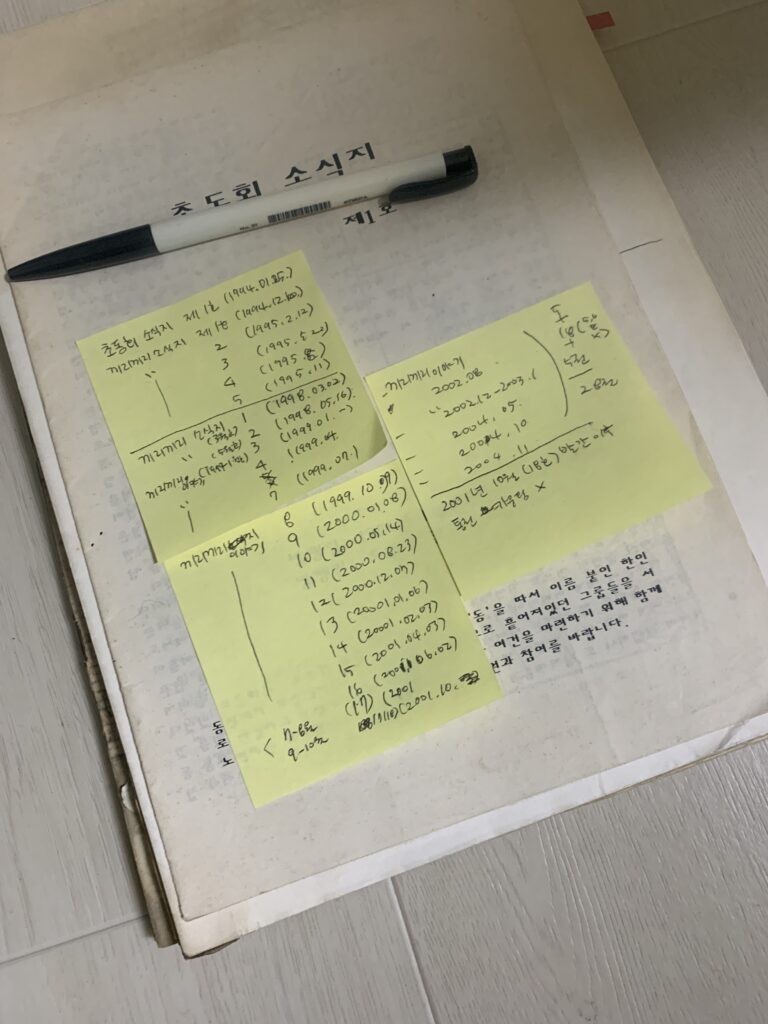 초동회 소식지
제1호
초동회 소식지 제1호 (1994.01.25.)
끼리끼리 소식지 제1호 (1994.12.)
〃 2 (1995.2.12)
3 (1995.)
4 (1995.8.)
5 (1995.11)
끼리끼리 소식지 1 (1998.03.02)
〃 2 (1998.05.16)
끼리끼리 3 (1999.01.-)
4 (1999.04.
〃 7 (1999.07.)
끼리끼리 이야기 8 (1999.10.)
9 (2000.01.08)
10 (2000.05.14)
11 (2000.08.27)
12 (2000.12.09)
13 (20001.01.06)
14 (20001.02.03)
15 (2001.04.03)
16 (2001.06.02)
(17) (2001
(18) (2001.10.
< 7-8월
9-10월
- 끼리끼리 이야기
2002.08.
〃 200212-2003.1
- 2004.05.
- 2004.10
= 2004.11
총
(18)
+
5권
28권
2001년 10월 (18호) 발간 이후
통권 기록 ×
동'을 따서 이름 붙인 한인
로 흩어져있던 그룹들을 서
여건을 마련하기 위해 함께
참여를 바랍니다.
동
로
노